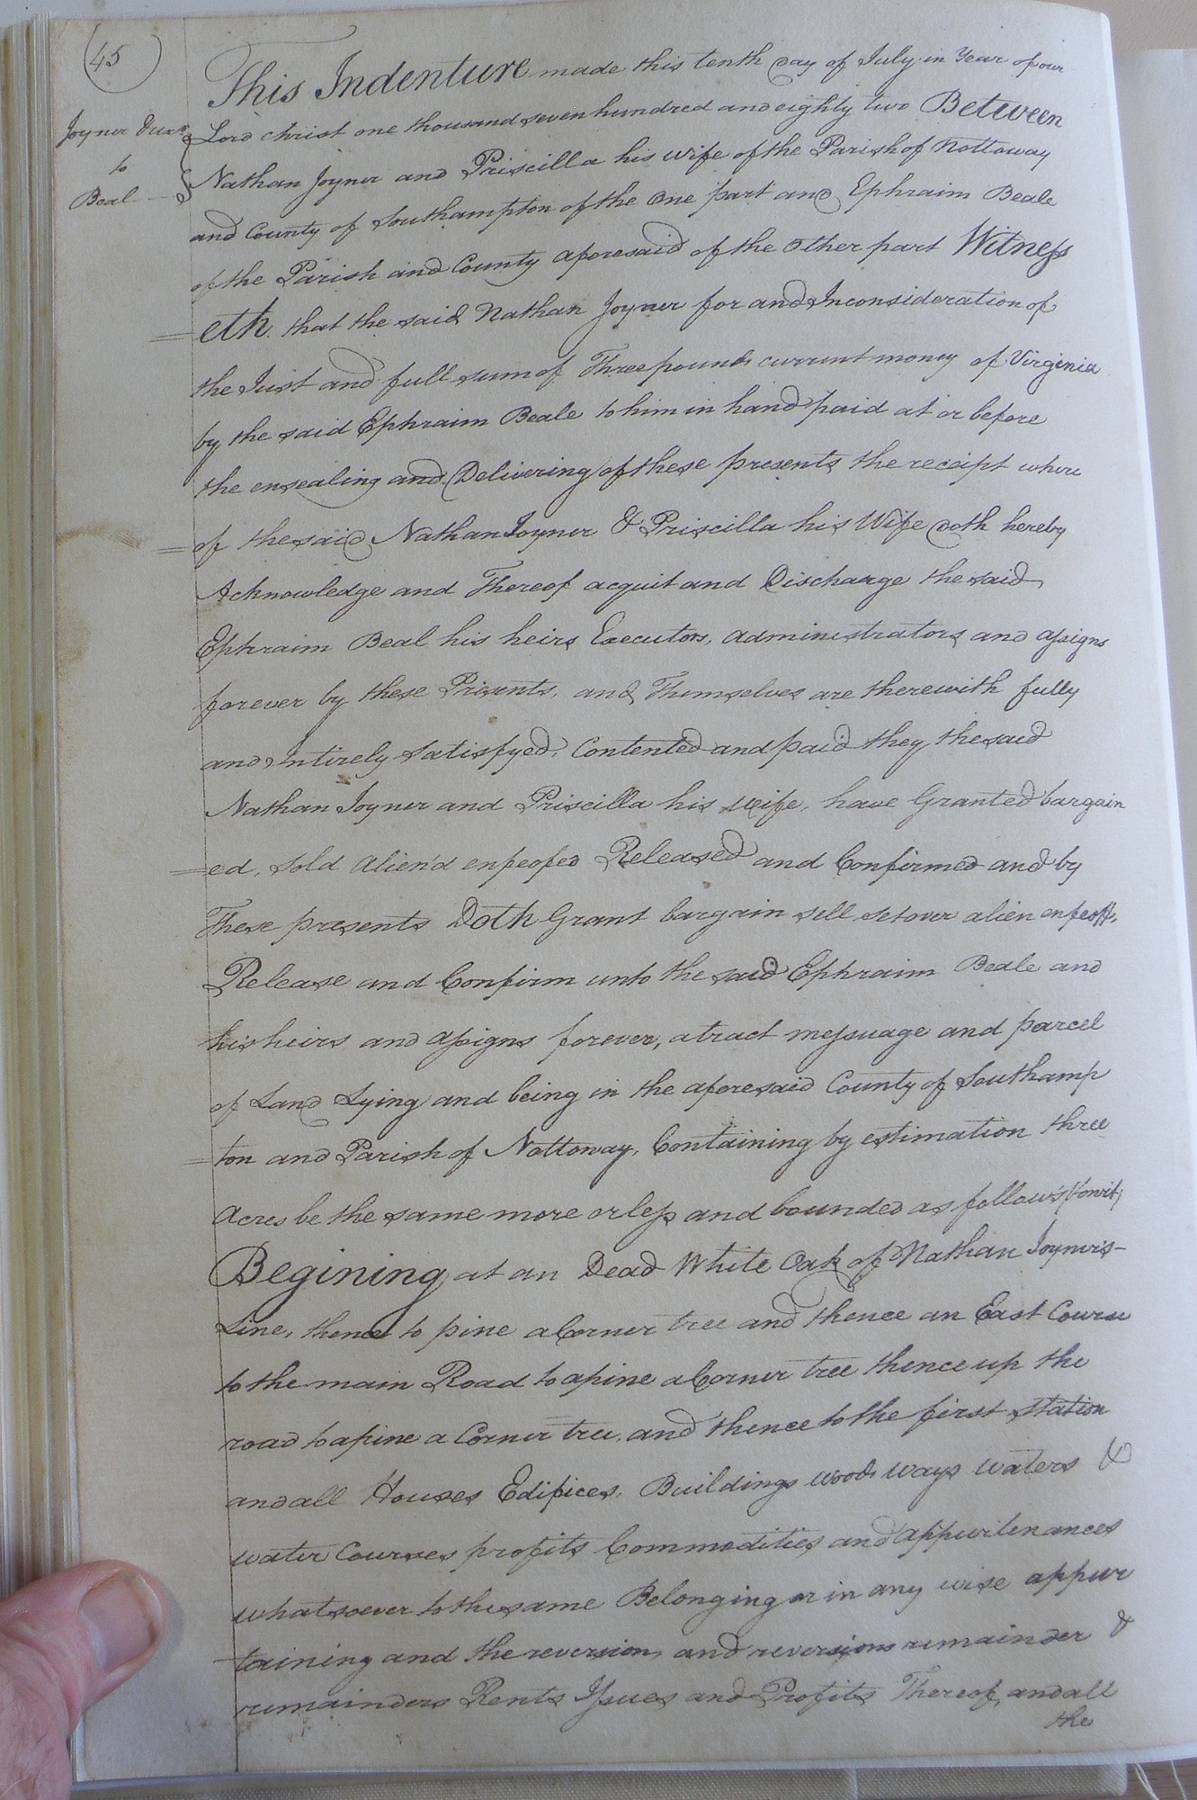 45
Joyner &ux
to
Beal
This Indenture made this tenth Day of July in Year of our
Lord christ one thousand seven hundred and eighty two Between
Nathan Joyner and Priscilla his wife of the Parish of Nottoway
and County of Southampton of the One part and Ephraim Beale
of the Parish and County aforesaid of the Other part Witness
=eth. that the said Nathan Joyner for and Inconsideration of
the Just and full sum of Three pounds current money of Virginia
by the said Ephraim Beale to him in hand paid at or before
the ensealing and Delivering of these presents the receipt where
=of the said Nathan Joyner & Priscilla his Wife doth hereby
Acknowledge and Thereof acquit and Discharge the said
Ephraim Beal his heirs Executors, administrators and assigns
forever by these Presents, and Themselves are therewith fully
and Intirely Satisfyed, Contented and paid they the said
Nathan Joyner and Priscilla his wife, have Granted bargain
=ed, Sold Alien'd enfeofed Released and Confirmed and by
These presents Doth Grant bargain sell setover alien enfeoff,
Release and Confirm unto the said Ephraim Beale and
his heirs and assigns forever, a tract messuage and parcel
of Land Lying and being in the aforesaid County of Southamp
=ton and Parish of Nottoway, Containing by estimation three
Acres be the same more or less and bounded as follows (towit)
Begining at an Dead White Oak of Nathan Joyner's
Line, thence to pine a Corner tree and thence an East Course
to the main Road to a pine a Corner tree thence up the
road to a pine a Corner tree, and thence to the first Station
and all Houses Edifices, Buildings woods ways waters &
water Courses profits Commodities and appurtenances
whatsoever to the same Belonging or in any wise appur
taining and the reversion, and reversions remainder &
remainders Rents Issues and Profits Thereof, and all
the